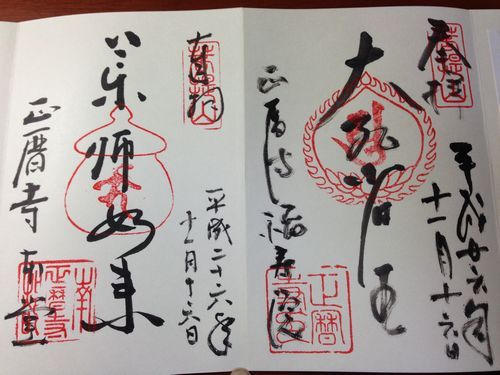 奉拝
平成廿六年
十一月十六日
大孔雀明王
正暦寺福寿院
奉拝
平成二十六年
十一月十六日
薬師如来
正暦寺